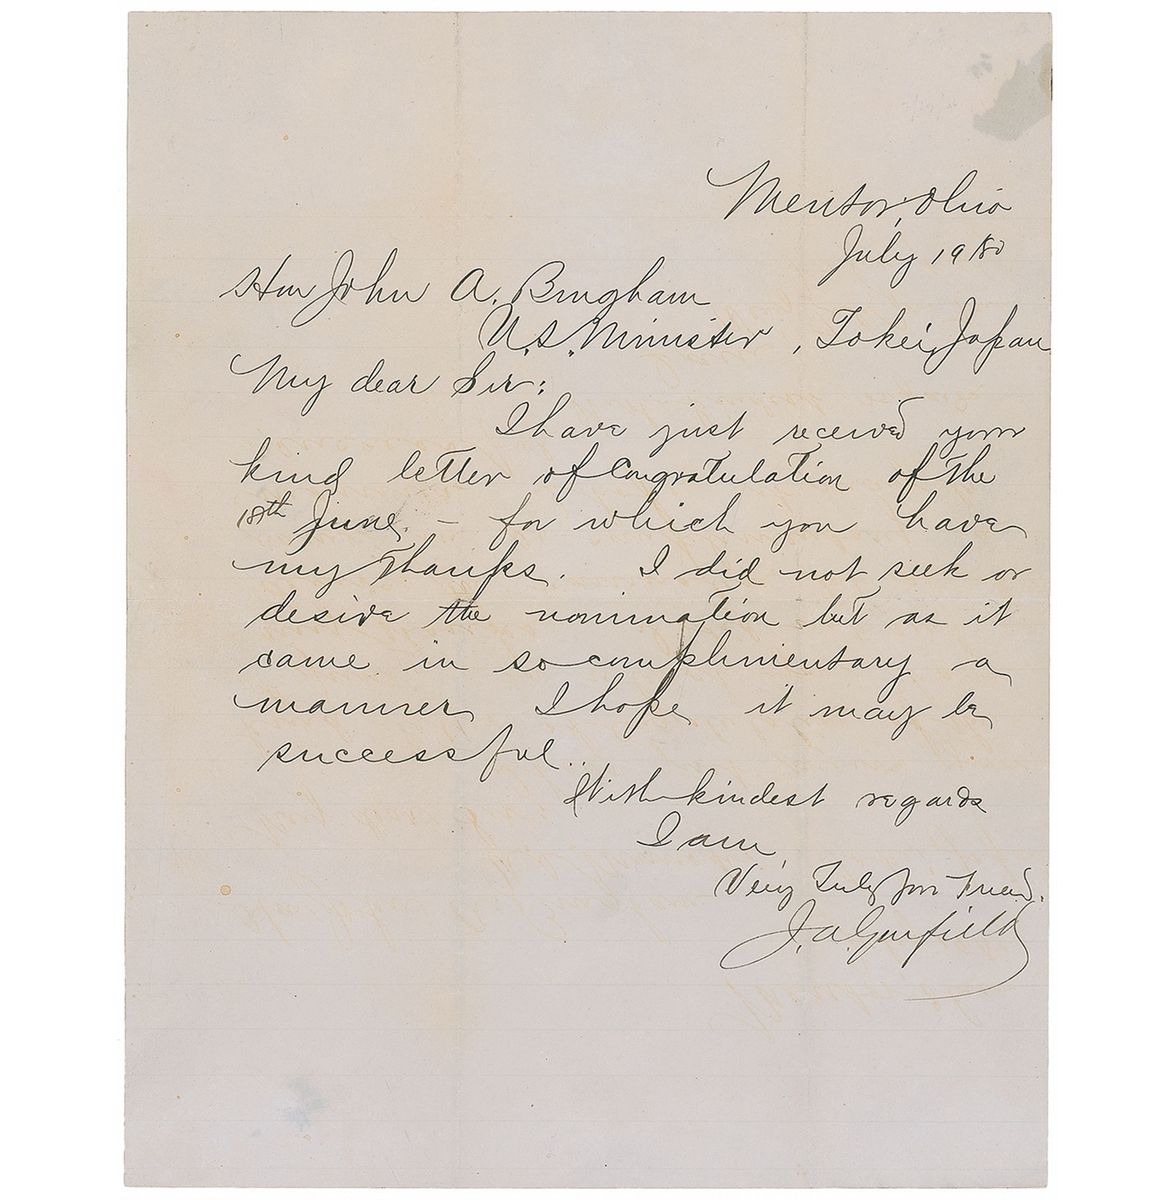 Mentor, Ohio
July 19 80
Hon John A. Bingham
U.S. Minister, Tokei, Japan
My dear Sir:
I have just received your
kind letter of congratulation of the
18th June, – for which you have
my thanks. I did not seek or
desire the nomination but as it
came in so complimentary a
manner I hope it may be
successful.
With kindest regards
I am,
Very Truly your Friend.
J. A. Garfield